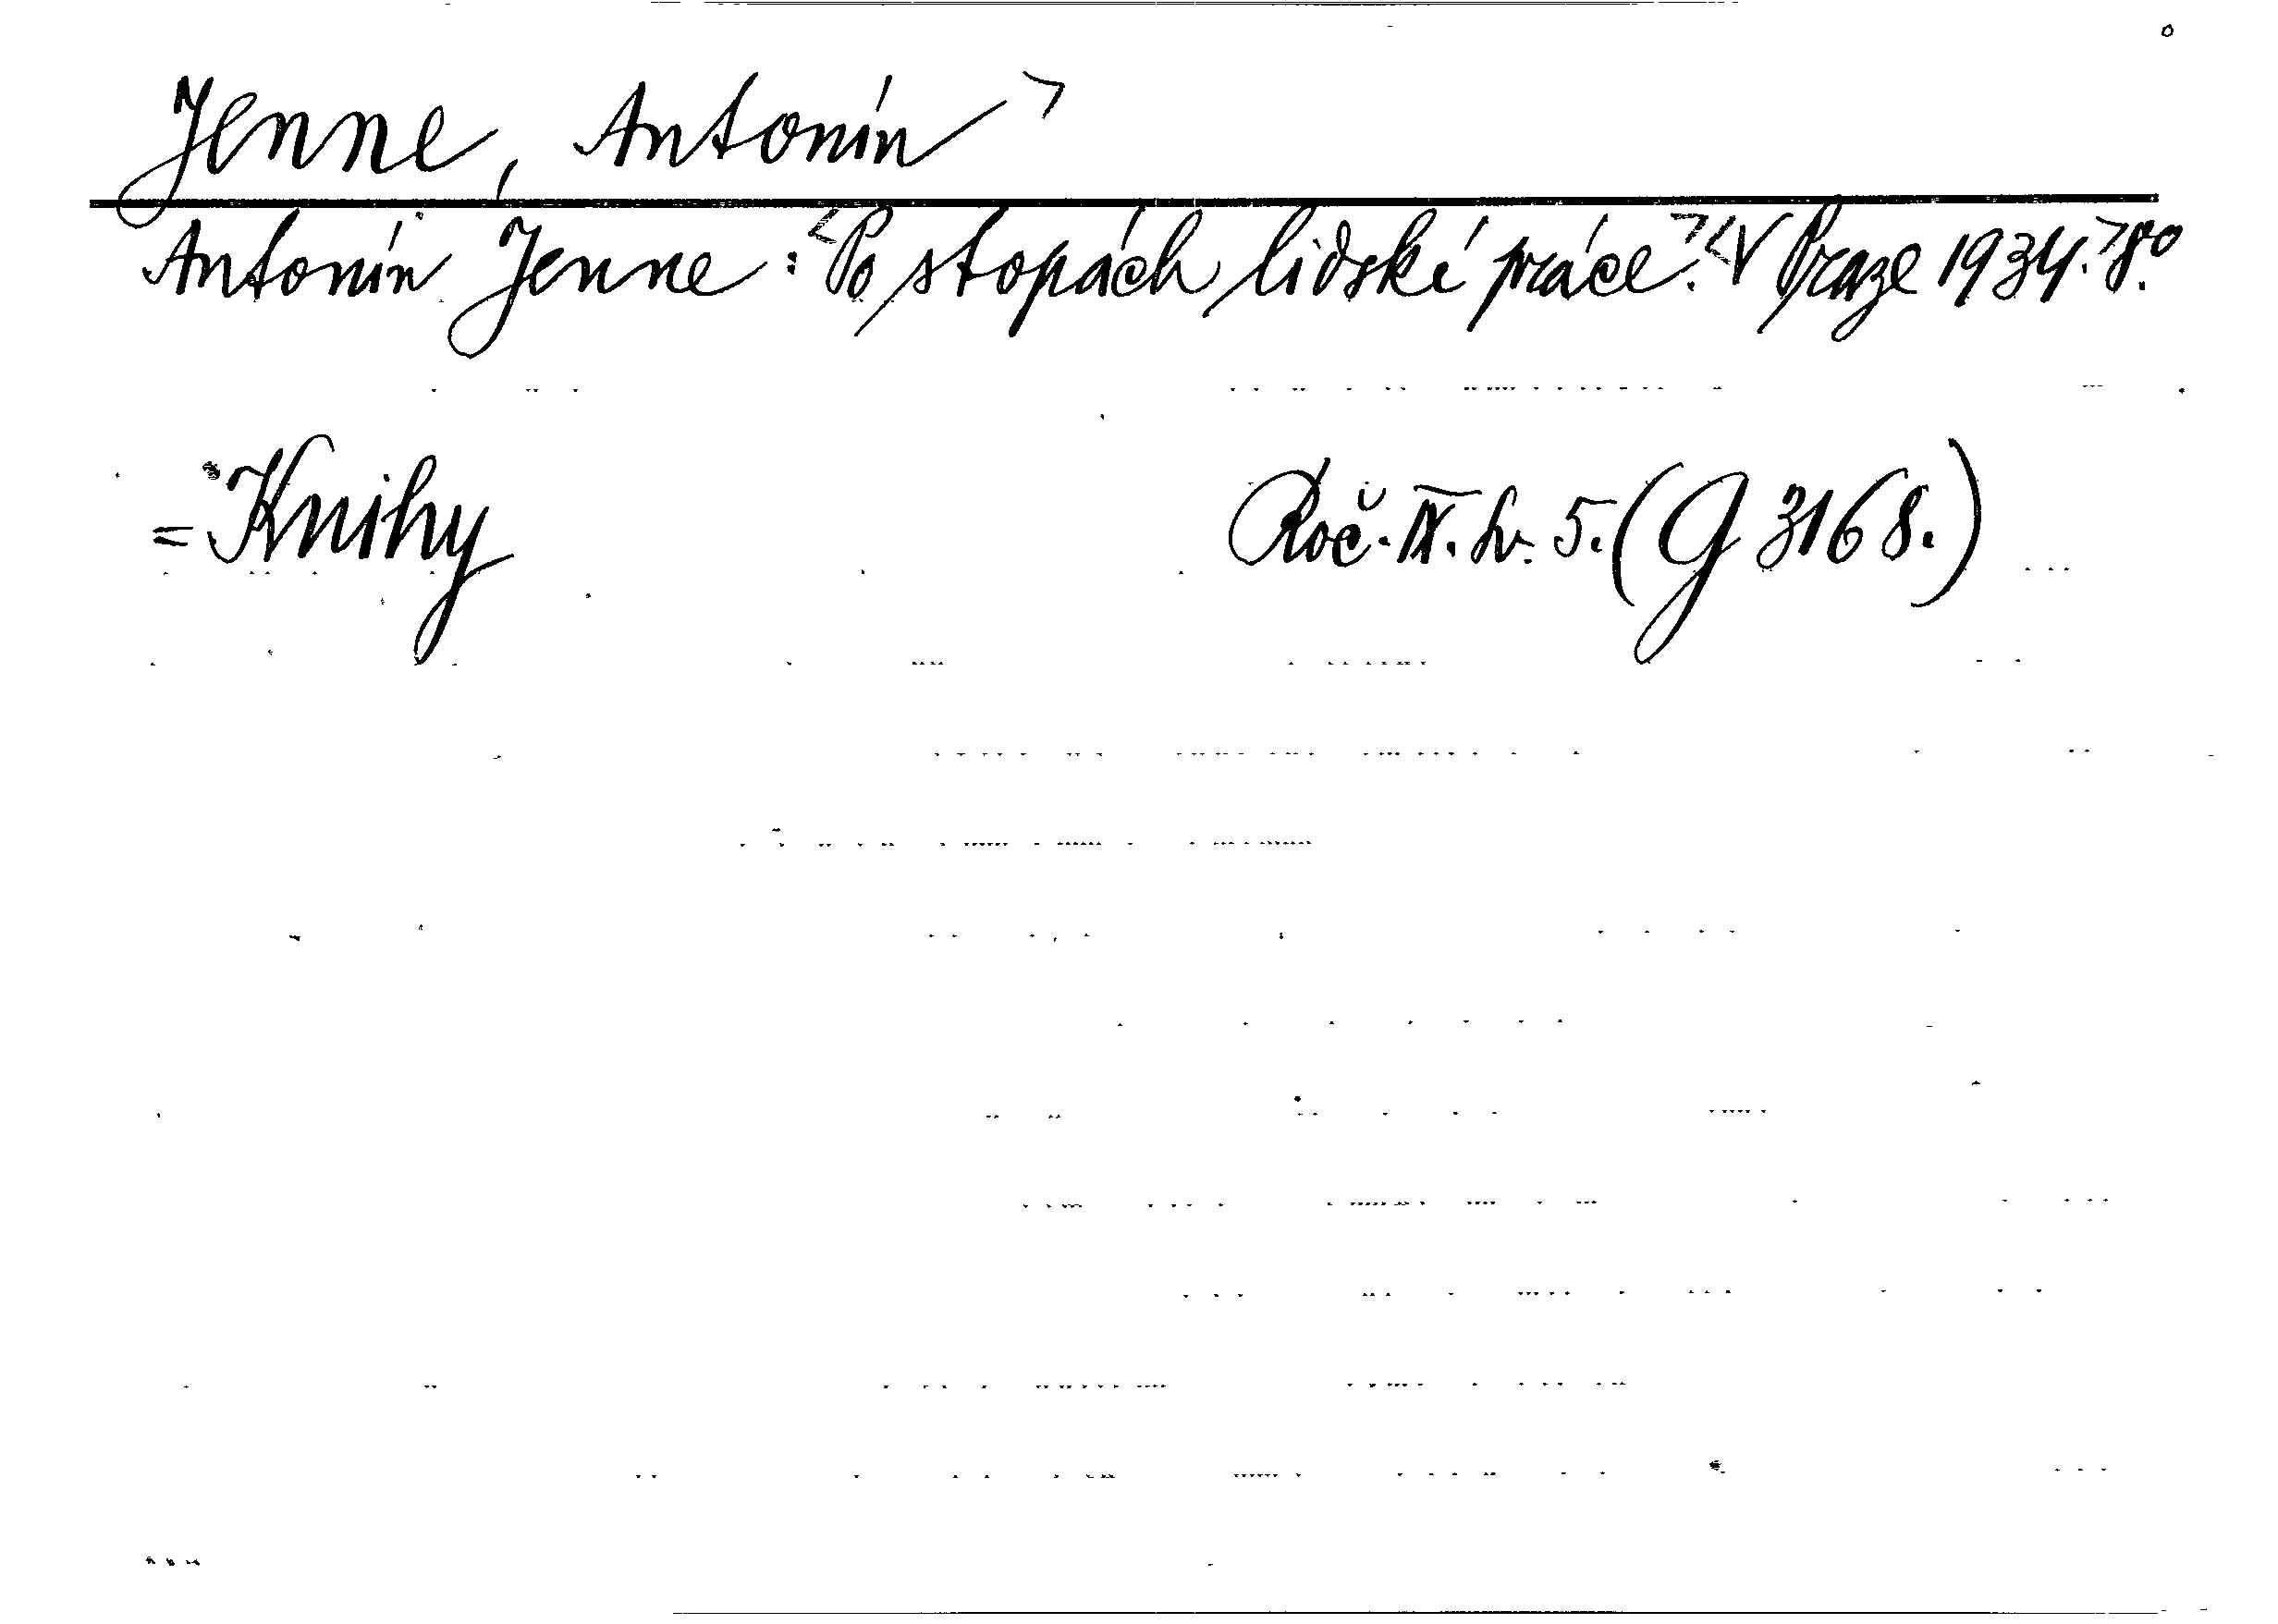 Jenne, Antonín >
Antonín Jenne : <Po stopách lidské práce.> <V Praze 1934.> 8°.
= Knihy Roč. IX. sv. 5. (G 3168.)